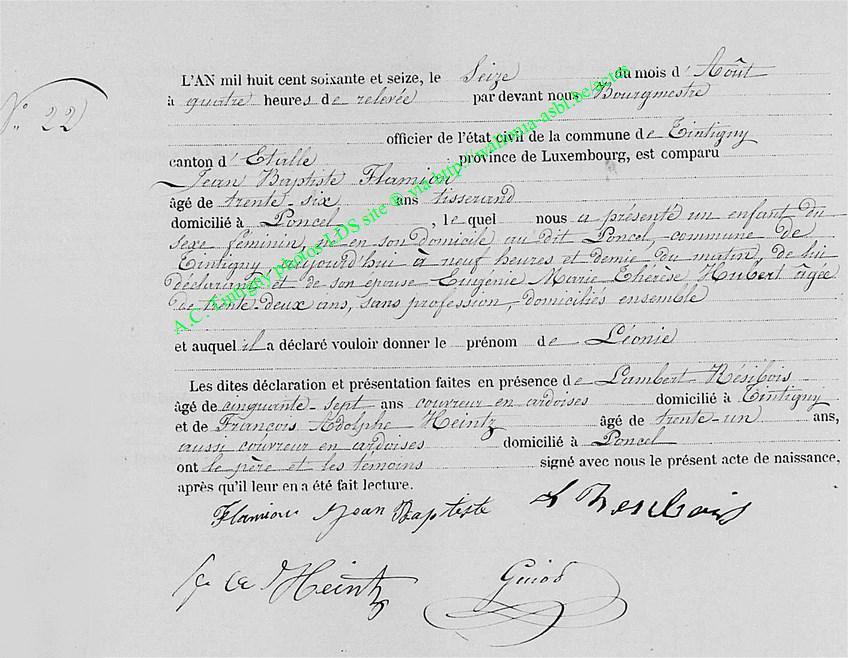 N° 22
L'AN mil huit cent soixante et seize, le Seize du mois d'Août
à quatre heures de relevée par devant nous Bourgmestre
officier de l'état civil de la commune de Tintigny
canton d'Etalle province de Luxembourg, est comparu
Jean Baptiste Flamion
âgé de trente-six ans tisserand
domicilié à Poncel, lequel nous a présenté un enfant du
sexe féminin, né en son domicile au dit Poncel, commune de
Tintigny aujourd'hui à neuf heures et demie du matin, de lui
déclarant et de son épouse Eugénie Marie Thérèse Hubert âgée
de trente-deux ans, sans profession, domiciliés ensemble
et auquel il a déclaré vouloir donner le prénom de Léonie
Les dites déclaration et présentation faites en présence de Lambert Résibois
âgé de cinquante-sept ans couvreur en ardoises domicilié à Tintigny
et de François Adolphe Heintz âgé de trente-un ans,
aussi couvreur en ardoises domicilié à Poncel
ont le père et les témoins signé avec nous le présent acte de naissance,
après qu'il leur en a été fait lecture.
Flamion Jean Baptiste L Resibois
Heintz
A.C. Tintigny photos LDS site ® via http://wallonia-asbl.be/actes